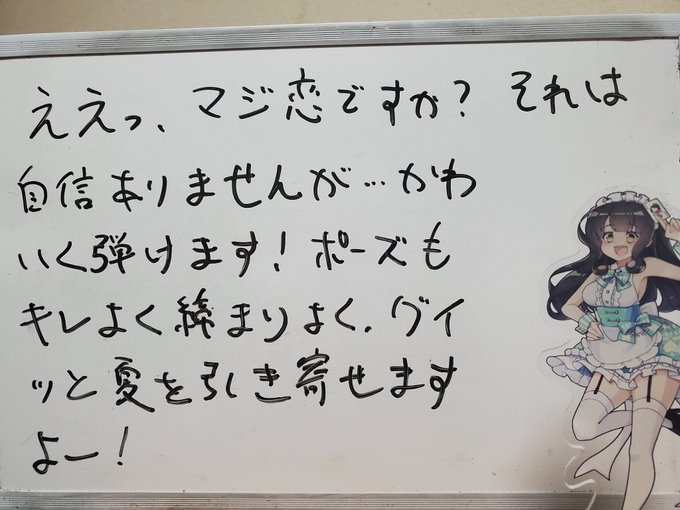 ええっ、マジ恋ですか？ それは
自信ありませんが…かわ
いく弾けます！ポーズも
キレよく締まりよく、グイ
ッと夏を引き寄せます
よー！